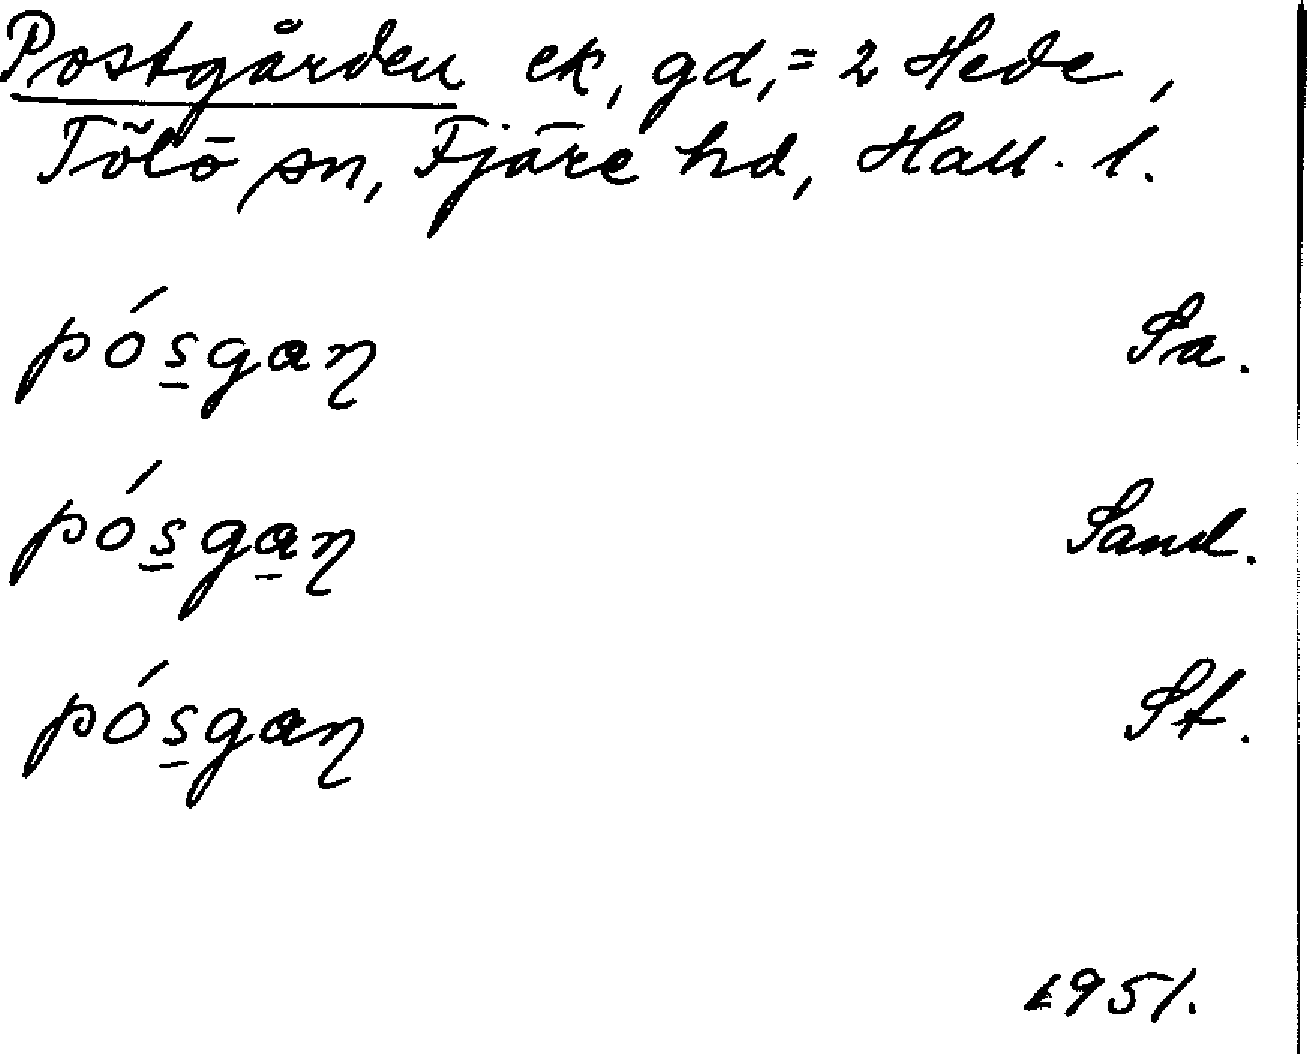 Postgården ek, gd, = 2 Hede,
Tölö sn, Fjäre hd, Hall. l.
pós̲gaɳ Sa.
pós̲ga̲ɳ Sand.
pós̲gaɳ St.
1951.